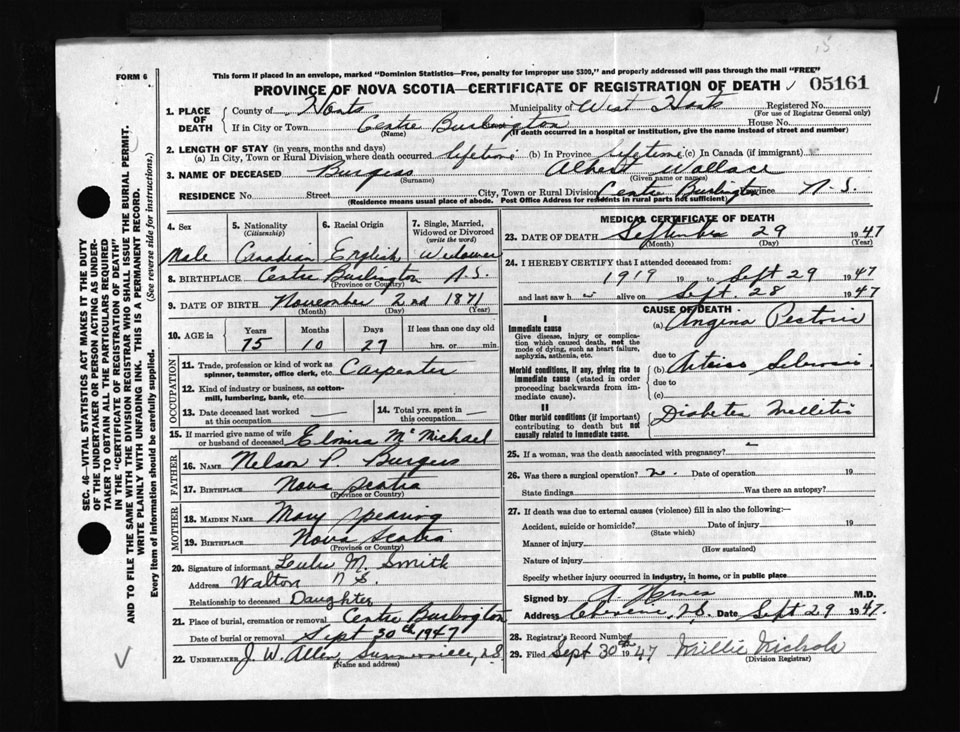 15
FORM 6
This form if placed in an envelope, marked "Dominion Statistics—Free, penalty for improper use $300," and properly addressed will pass through the mail "FREE"
PROVINCE OF NOVA SCOTIA—CERTIFICATE OF REGISTRATION OF DEATH √ 05161
1. PLACE OF DEATH
County of Hants Municipality of West Hants Registered No.
(For use of Registrar General only)
If in City or Town Centre Burlington House No.
(Name) (If death occurred in a hospital or institution, give the name instead of street and number)
2. LENGTH OF STAY (in years, months and days)
(a) In City, Town or Rural Division where death occurred lifetime (b) In Province lifetime (c) In Canada (if immigrant)
3. NAME OF DECEASED Burgess Albert Wallace
(Surname) (Given name or names)
RESIDENCE No. Street City, Town or Rural Division Centre Burlington Province N.S.
(Residence means usual place of abode. Post Office Address for residents in rural parts not sufficient)
4. Sex 5. Nationality (Citizenship) 6. Racial Origin 7. Single, Married, Widowed or Divorced (write the word)
Male Canadian English Widower
8. BIRTHPLACE Centre Burlington N.S.
(Province or Country)
9. DATE OF BIRTH November 2nd 1871
(Month) (Day) (Year)
10. AGE in Years Months Days If less than one day old
75 10 27 hrs. or min.
OCCUPATION
11. Trade, profession or kind of work as spinner, teamster, office clerk, etc. Carpenter
12. Kind of industry or business, as cotton-mill, lumbering, bank, etc.
13. Date deceased last worked at this occupation — 14. Total yrs. spent in this occupation —
15. If married give name of wife or husband of deceased Elmira McMichael
FATHER
16. NAME Nelson P. Burgess
17. BIRTHPLACE Nova Scotia
(Province or Country)
MOTHER
18. MAIDEN NAME Mary Spearing
19. BIRTHPLACE Nova Scotia
(Province or Country)
20. Signature of informant M. Smith
Address Walton N.S.
Relationship to deceased Daughter
21. Place of burial, cremation or removal Centre Burlington
Date of burial or removal Sept 30th 1947
22. UNDERTAKER J. W. Allen Summerville, N.S.
(Name and address)
MEDICAL CERTIFICATE OF DEATH
23. DATE OF DEATH September 29 1947
(Month) (Day) (Year)
24. I HEREBY CERTIFY that I attended deceased from:
1919 19 to Sept 29 1947
and last saw h alive on Sept. 28 1947
CAUSE OF DEATH
I
Immediate cause
Give disease, injury or complication which caused death, not the mode of dying, such as heart failure, asphyxia, asthenia, etc.
(a) Angina Pectoris
due to
Morbid conditions, if any, giving rise to immediate cause (stated in order proceeding backwards from immediate cause).
(b) Arterio Sclerosis
due to
(c)
II
Other morbid conditions (if important) contributing to death but not causally related to immediate cause.
Diabetes Mellitis
25. If a woman, was the death associated with pregnancy?
26. Was there a surgical operation? no. Date of operation 19
State findings Was there an autopsy?
27. If death was due to external causes (violence) fill in also the following:—
Accident, suicide or homicide? Date of injury 19
(State which)
Manner of injury
(How sustained)
Nature of injury
Specify whether injury occurred in industry, in home, or in public place
Signed by M.D.
Address Cheverie, N.S. Date Sept 29 1947.
28. Registrar's Record Number
29. Filed Sept 30th 1947 Millie Nichols
(Division Registrar)
SEC. 46—VITAL STATISTICS ACT MAKES IT THE DUTY OF THE UNDERTAKER OR PERSON ACTING AS UNDERTAKER TO OBTAIN ALL THE PARTICULARS REQUIRED IN THE "CERTIFICATE OF REGISTRATION OF DEATH" AND TO FILE THE SAME WITH THE DIVISION REGISTRAR WHO SHALL ISSUE THE BURIAL PERMIT.
WRITE PLAINLY WITH UNFADING INK. THIS IS A PERMANENT RECORD.
Every item of information should be carefully supplied. (See reverse side for instructions.)